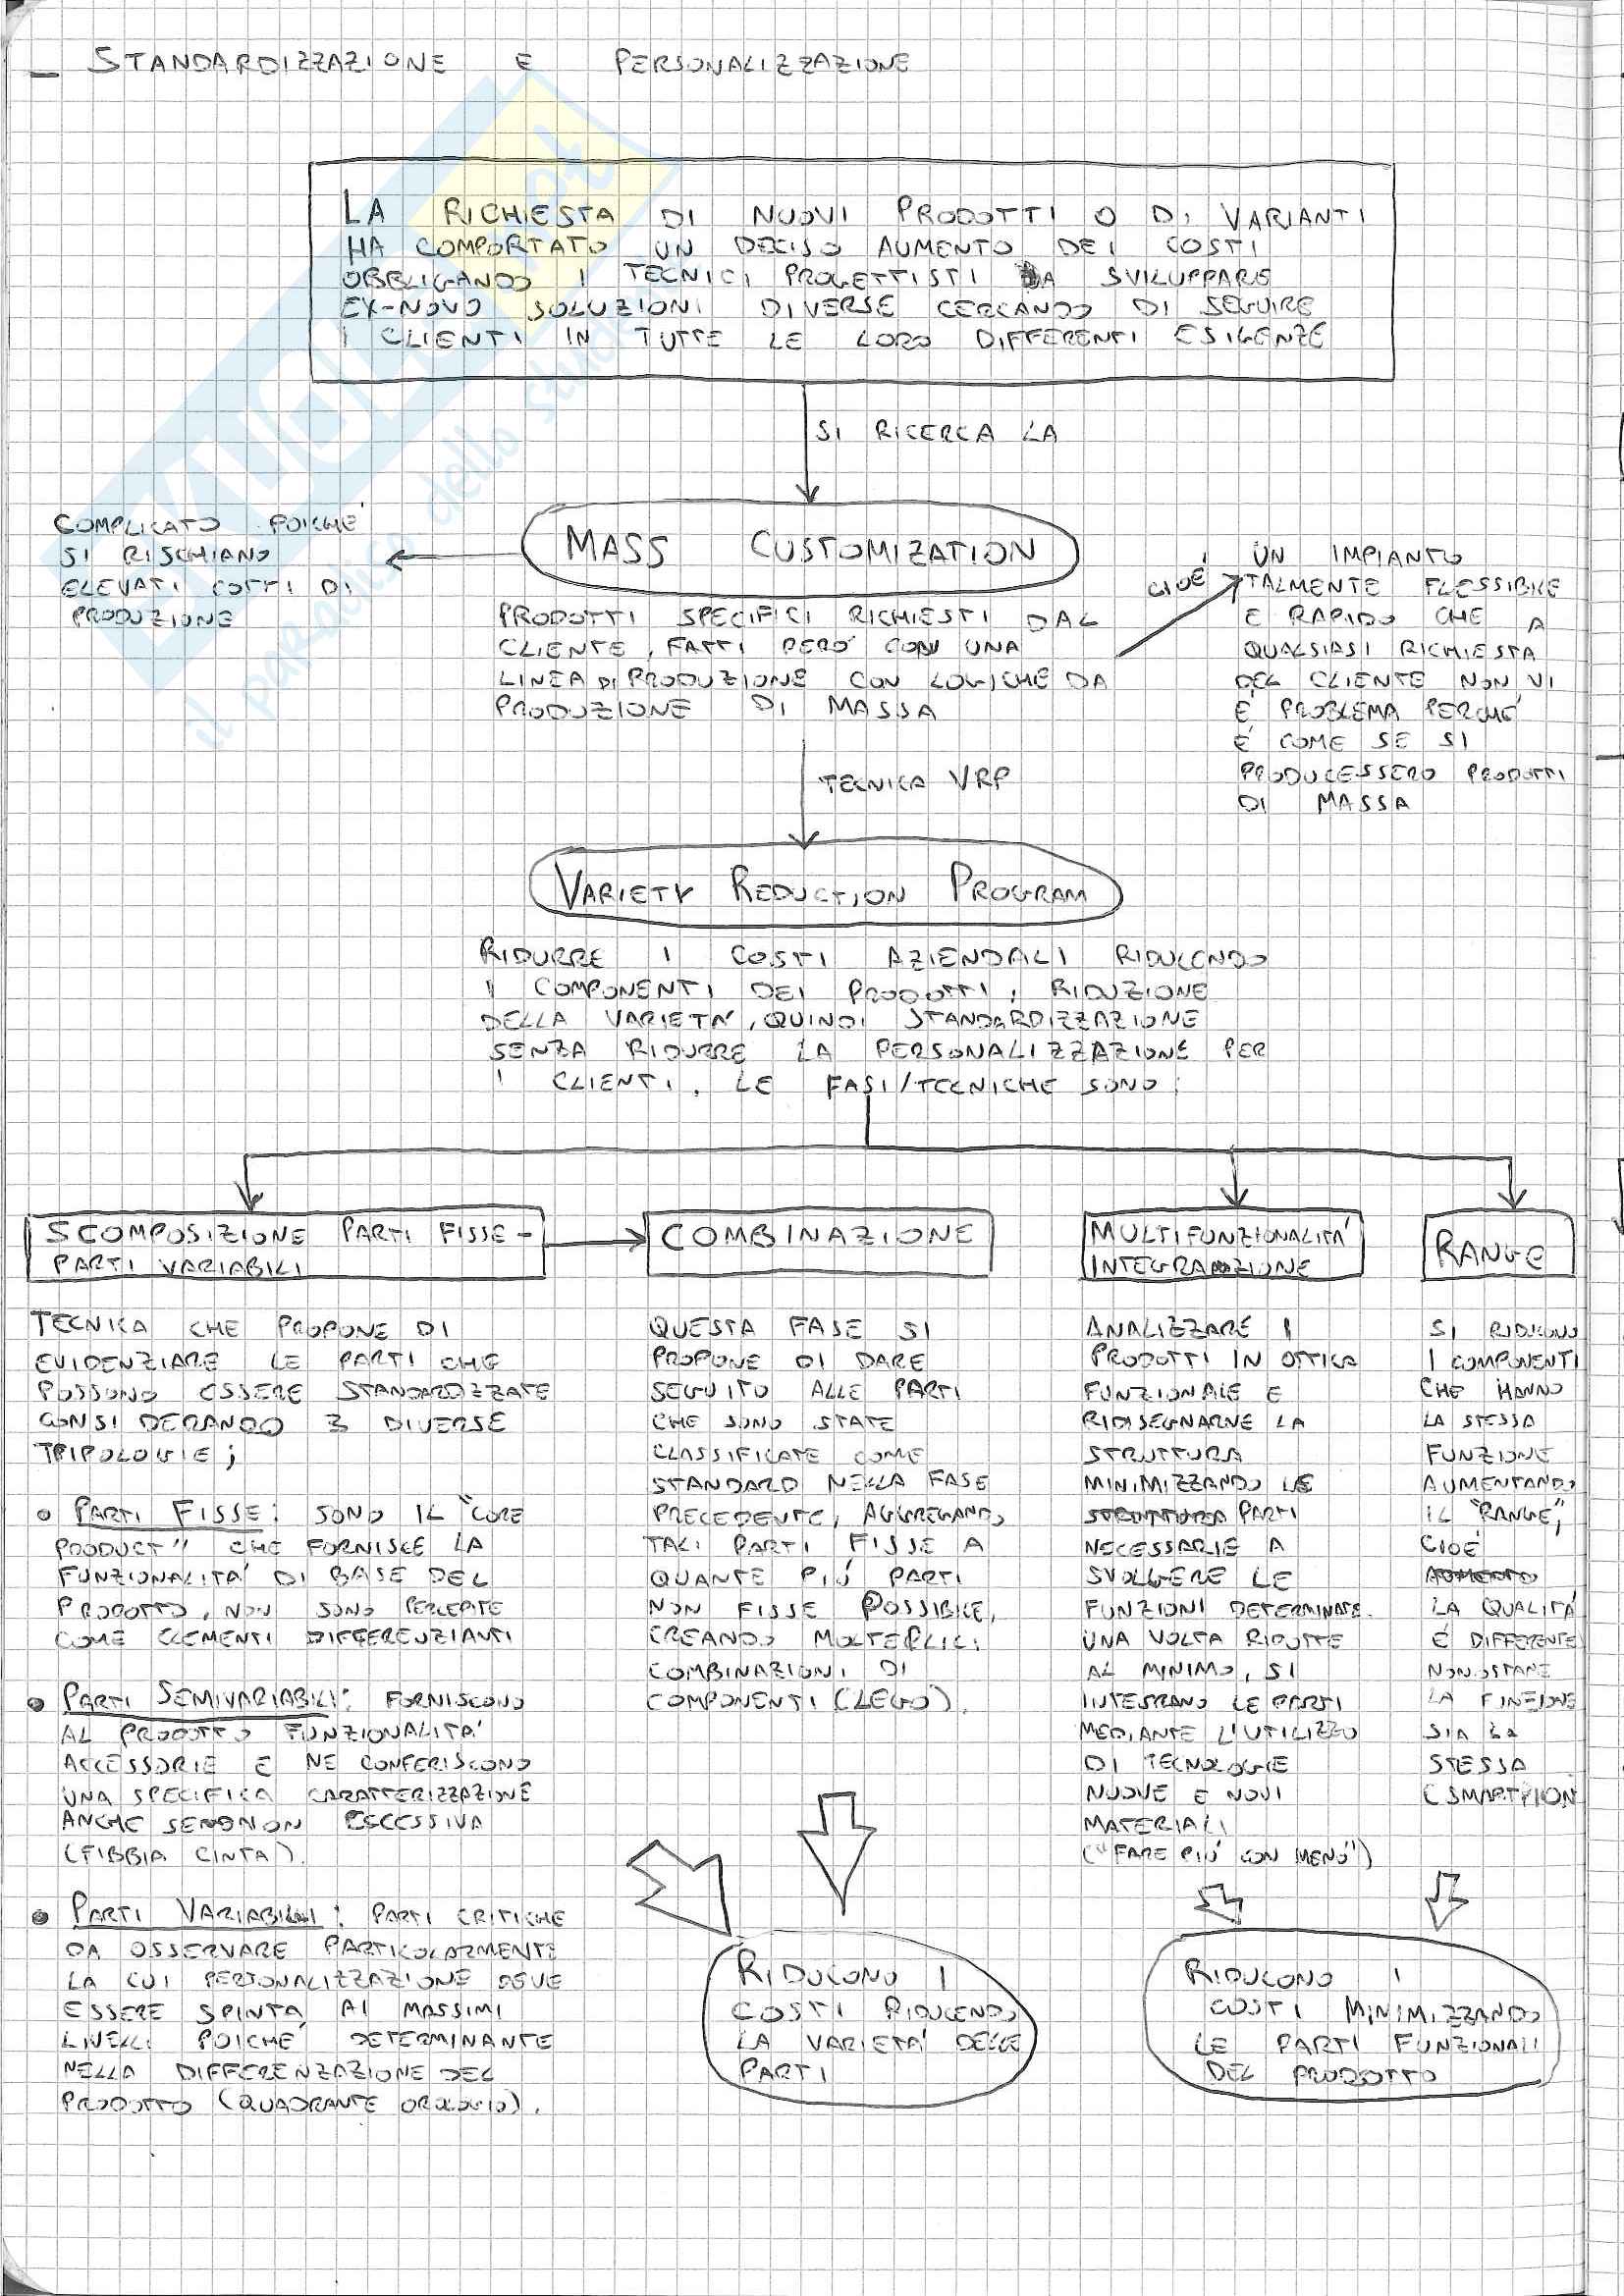 – STANDARDIZZAZIONE E PERSONALIZZAZIONE
LA RICHIESTA DI NUOVI PRODOTTI O DI VARIANTI
HA COMPORTATO UN DECISO AUMENTO DEI COSTI
OBBLIGANDO I TECNICI PROGETTISTI A SVILUPPARE
EX-NOVO SOLUZIONI DIVERSE CERCANDO DI SEGUIRE
I CLIENTI IN TUTTE LE LORO DIFFERENTI ESIGENZE
SI RICERCA LA
MASS CUSTOMIZATION
COMPLICATO POICHE'
SI RISCHIANO
ELEVATI COSTI DI
PRODUZIONE
PRODOTTI SPECIFICI RICHIESTI DAL
CLIENTE, FATTI PERO' CON UNA
LINEA DI PRODUZIONE CON LOGICHE DA
PRODUZIONE DI MASSA
CIOE'
UN IMPIANTO
TALMENTE FLESSIBILE
E RAPIDO CHE A
QUALSIASI RICHIESTA
DEL CLIENTE NON VI
E' PROBLEMA PERCHE'
E' COME SE SI
PRODUCESSERO PRODOTTI
DI MASSA
TECNICA VRP
VARIETY REDUCTION PROGRAM
RIDURRE I COSTI AZIENDALI RIDUCENDO
I COMPONENTI DEI PRODOTTI; RIDUZIONE
DELLA VARIETA', QUINDI STANDARDIZZAZIONE
SENZA RIDURRE LA PERSONALIZZAZIONE PER
I CLIENTI. LE FASI/TECNICHE SONO:
SCOMPOSIZIONE PARTI FISSE-
PARTI VARIABILI
TECNICA CHE PROPONE DI
EVIDENZIARE LE PARTI CHE
POSSONO ESSERE STANDARDIZZATE
CONSIDERANDO 3 DIVERSE
TRIPOLOGIE;
• PARTI FISSE: SONO IL "CORE
POODUCT" CHE FORNISCE LA
FUNZIONALITA' DI BASE DEL
PRODOTTO, NON SONO PERCEPITE
COME ELEMENTI DIFFERENZIANTI
• PARTI SEMIVARIABILI: FORNISCONO
AL PRODOTTO FUNZIONALITA'
ACCESSORIE E NE CONFERISCONO
UNA SPECIFICA CARATTERIZZAZIONE
ANCHE SENONON ECCESSIVA
(FIBBIA CINTA).
• PARTI VARIABILI: PARTI CRITICHE
DA OSSERVARE PARTICOLARMENTE
LA CUI PERSONALIZZAZIONE DEVE
ESSERE SPINTA AI MASSIMI
LIVELLI POICHE' DETERMINANTE
NELLA DIFFERENZAZIONE DEL
PRODOTTO (QUADRANTE OROLOGIO).
COMBINAZIONE
QUESTA FASE SI
PROPONE DI DARE
SEGUITO ALLE PARTI
CHE SONO STATE
CLASSIFICATE COME
STANDARD NELLA FASE
PRECEDENTE, AGGREGANDO
TALI PARTI FISSE A
QUANTE PIU' PARTI
NON FISSE POSSIBILE,
CREANDO MOLTEPLICI
COMBINAZIONI DI
COMPONENTI (LEGO).
RIDUCONO I
COSTI RIDUCENDO
LA VARIETA' DELLE
PARTI
MULTIFUNZIONALITA'
INTEGRAZIONE
ANALIZZARE I
PRODOTTI IN OTTICA
FUNZIONALE E
RIDISEGNARNE LA
STRUTTURA
MINIMIZZANDO LE
STRUTTURA PARTI
NECESSARIE A
SVOLGERE LE
FUNZIONI DETERMINATE.
UNA VOLTA RIDOTTE
AL MINIMO, SI
INTEGRANO LE PARTI
MEDIANTE L'UTILIZZO
DI TECNOLOGIE
NUOVE E NUOVI
MATERIALI
("FARE PIU' CON MENO")
RANGE
SI RIDUCONO
I COMPONENTI
CHE HANNO
LA STESSA
FUNZIONE
AUMENTANDO
IL "RANGE",
CIOE'
AUMENTO
LA QUALITA'
E' DIFFERENTE
NONOSTANE
LA FUNZIONE
SIA LA
STESSA
(SMARTPHON
RIDUCONO I
COSTI MINIMIZZANDO
LE PARTI FUNZIONALI
DEL PRODOTTO